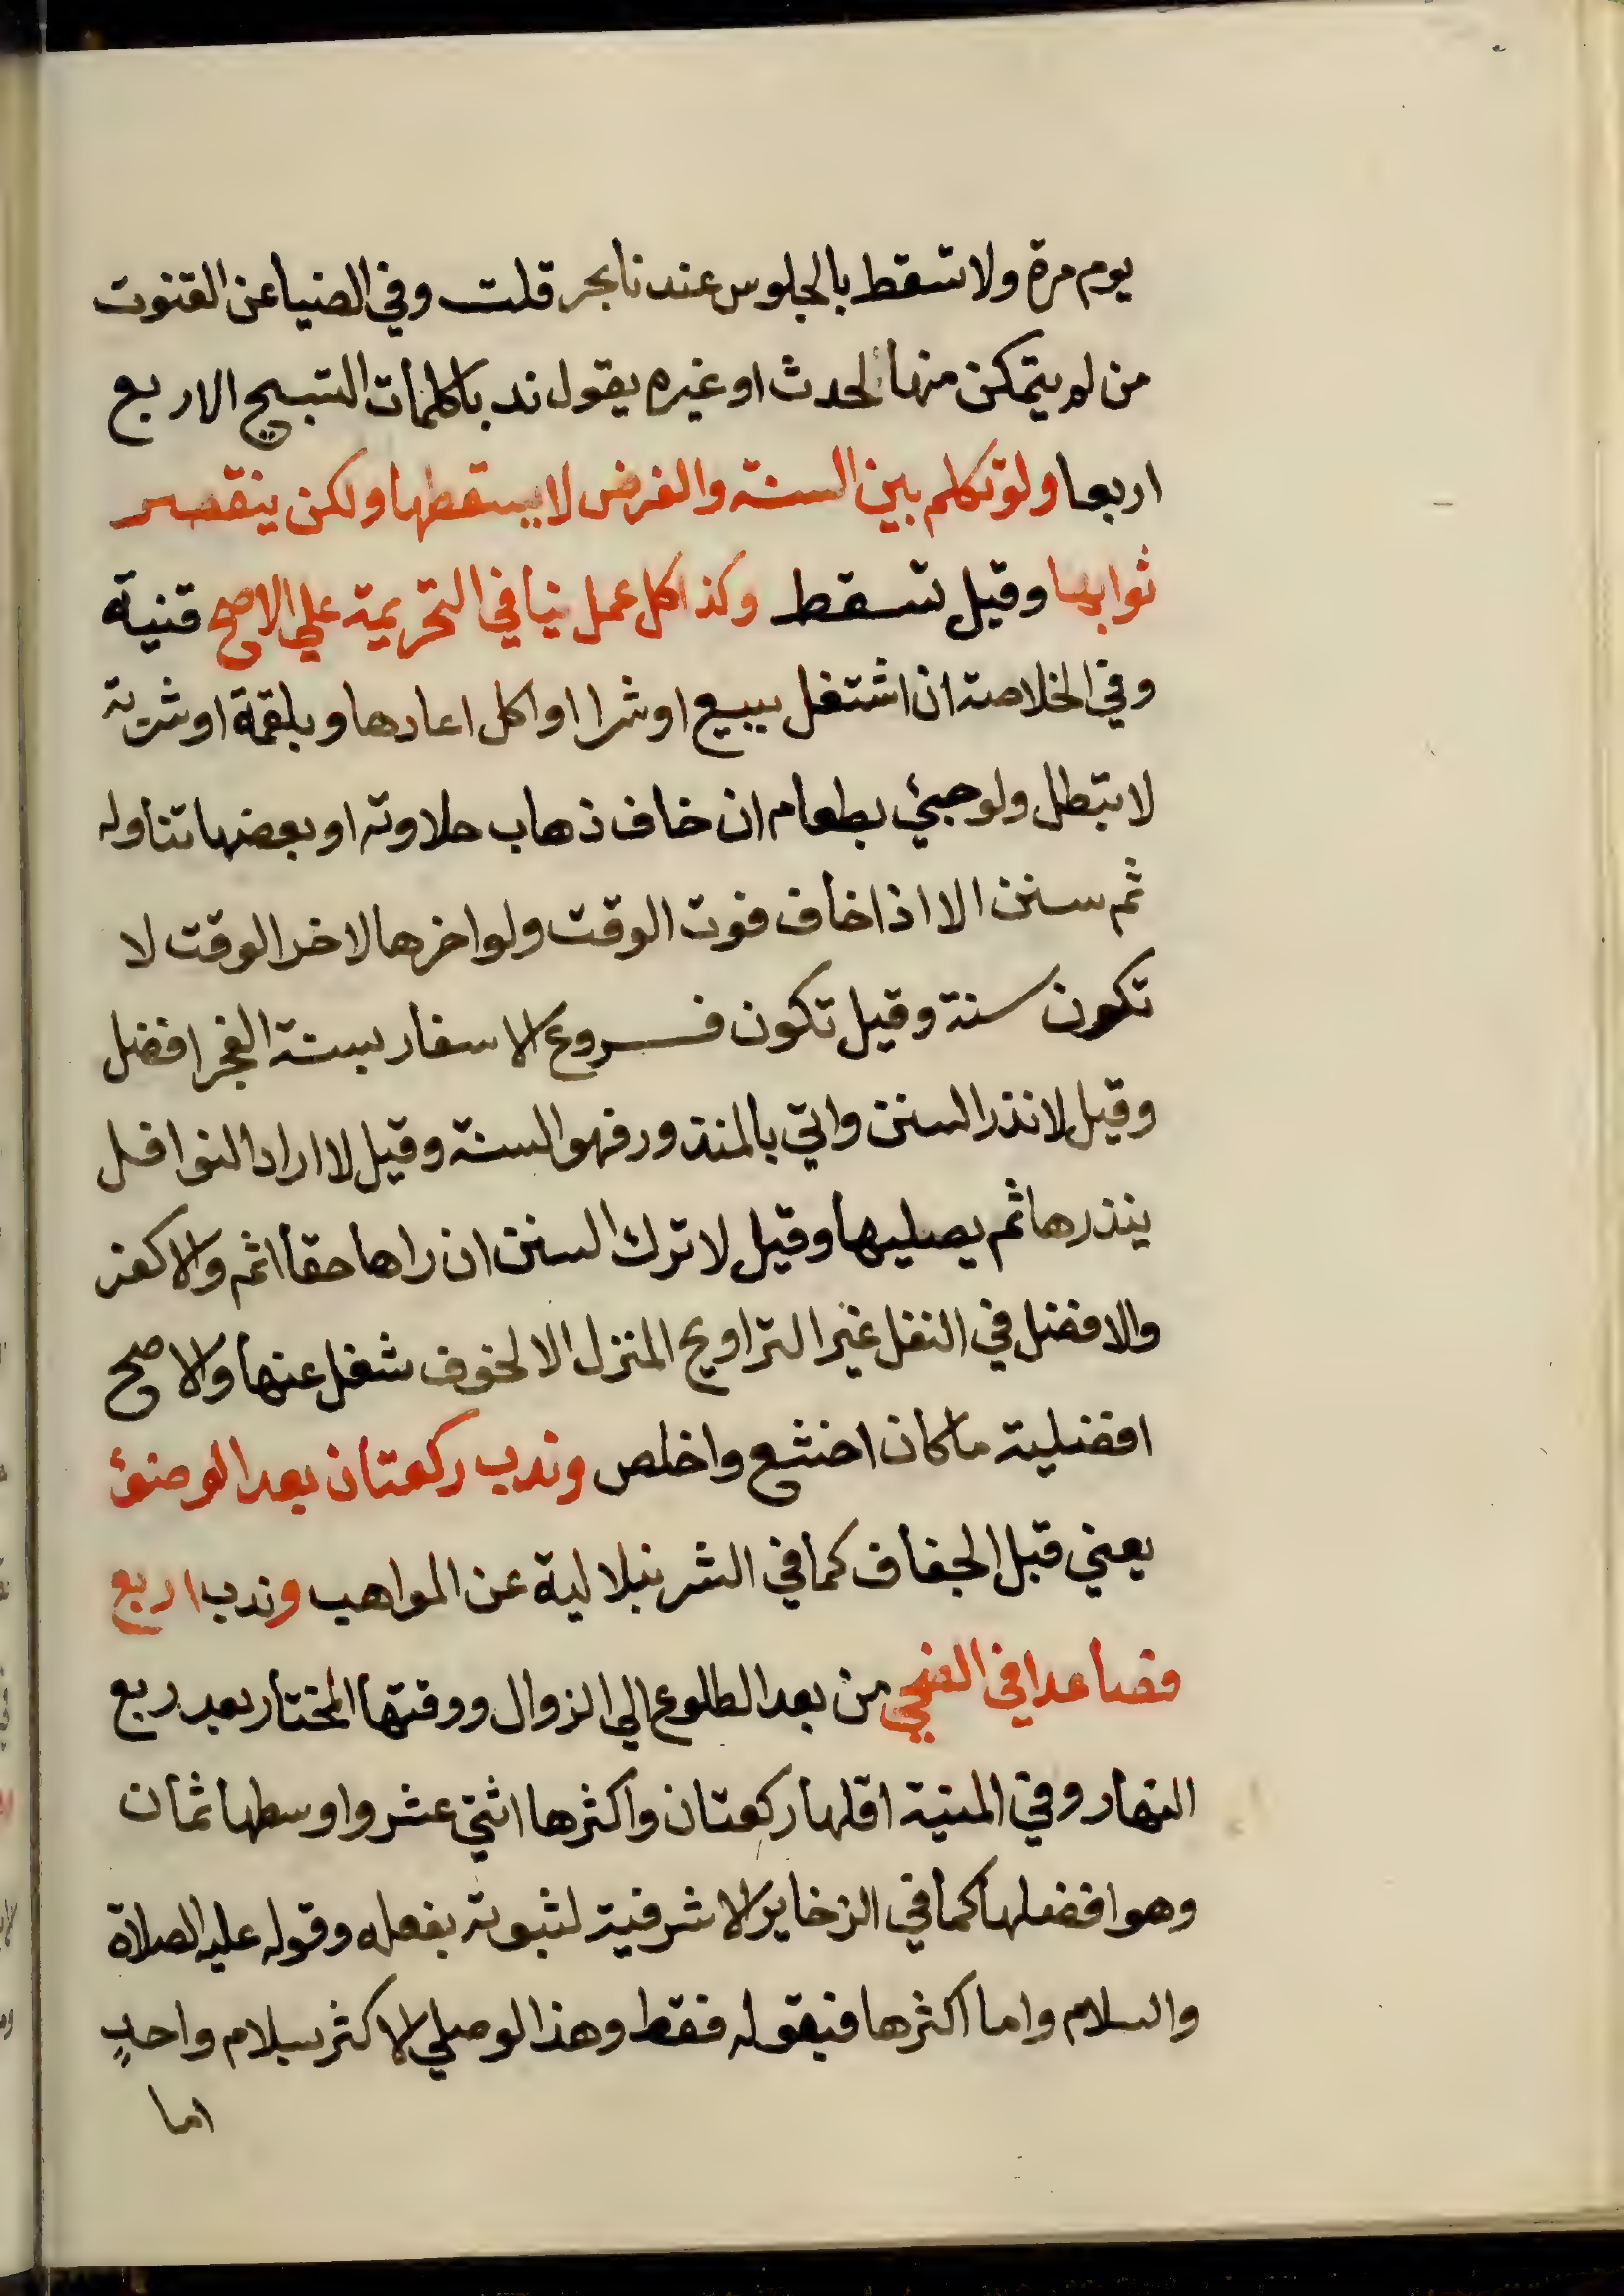 يوم مرة ولا تسقط بالجلوس عندنا بحر قلت وفي الضيا عن القنوت
من لم يتمكن منها لحدث او غيره يقول ندبا كلمات التسبيح الاربع
اربعا ولو تكلم بين السنة والفرض لا يسقطها ولكن ينقص
ثوابها وقيل تسقط وكذا كل عمل ينافي التحريمة علي الاصح قنية
وفي الخلاصة ان اشتغل ببيع او شرا او اكل اعادها وبلقمة او شربة
لا تبطل ولو جيئ بطعام ان خاف ذهاب حلاوته او بعضها تناوله
ثم سنن الا اذا خاف فوت الوقت ولو اخرها لاخر الوقت لا
تكون سنة وقيل تكون فروع الاسفار بسنة الفجر افضل
وقيل لا نذر السنن واتي بالمنذور فهو السنة وقيل لا اراد النوافل
ينذرها ثم يصليها وقيل لا ترك السنن ان راها حقا اثم والا كفر
والافضل في النفل غير التراويح المنزل الا لخوف شغل عنها والاصح
افضلية ما كان اخشع واخلص وندب ركعتان بعد الوضوئ
يعني قبل الجفاف كما في الشرنبلالية عن المواهب وندب اربع
فصاعدا في الضحي من بعد الطلوع الي الزوال ووقتها المختار بعد ربع
النهار وفي المنية اقلها ركعتان واكثرها اثني عشر واوسطها ثمان
وهو افضلها كما في الزخاير الاشرفية لثبوته بفعله وقوله عليه الصلاة
والسلام واما اكثرها فبقوله فقط وهذا لو صلي الاكثر بسلام واحدٍ
اما